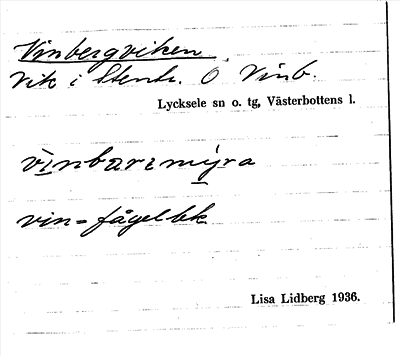 Vinbergviken
Vik i Stentr. O Vinb.
Lycksele sn o. tg, Västerbottens l.
vin = fågelbk
Lisa Lidberg 1936.